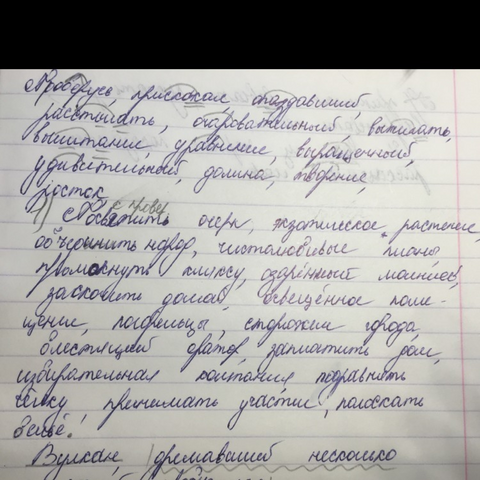 прискокал опоздавший,
расстилать, очаровательный, вытирать,
вычитание, уравнение, выращенный,
удивительный, долина, творение,
росток.
1) Посветить очерк, экзотическое растение,
объединить народ, честолюбивые планы
промокнуть кляксу, озарённый молнией,
заскочить домой, освещённое поме-
щение, погорельцы, сторожем города
блестящий оратор, заплатить дом,
избирательная компания, подравнять
чёлку, принимать участие, полоскать
бельё.
Вулкан, дремавший несколько